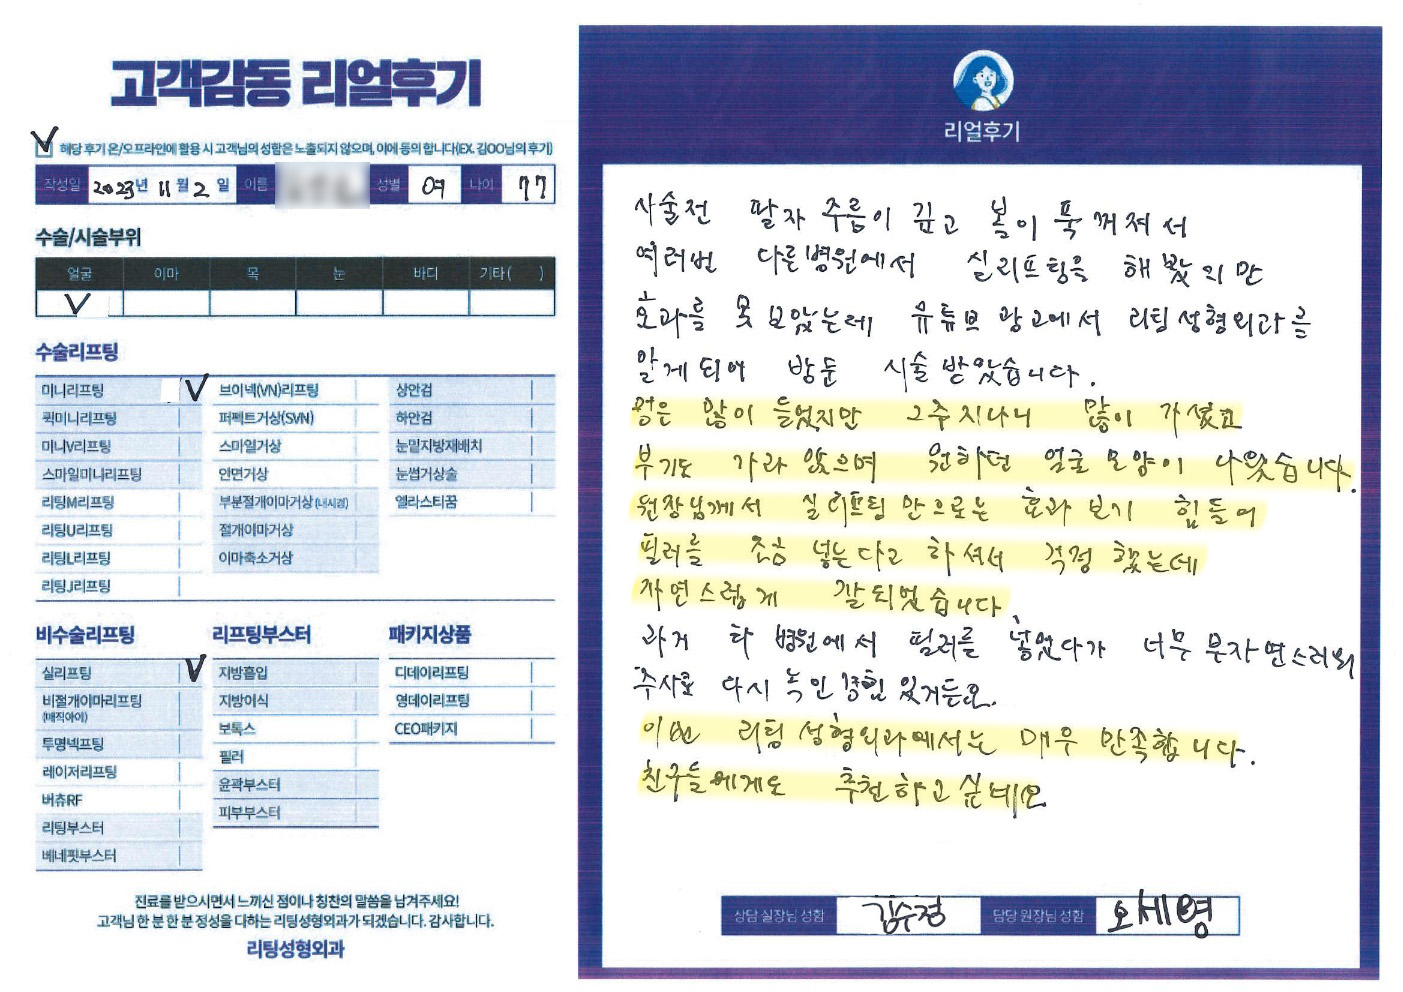 고객감동 리얼후기
✓ 해당 후기 온/오프라인에 활용 시 고객님의 성함은 노출되지 않으며, 이에 동의 합니다(EX. 김OO님의 후기)
작성일 2023년 11월 2일 이름 성별 여 나이 77
수술/시술부위
얼굴 이마 목 눈 바디 기타( )
✓
수술리프팅
미니리프팅 ✓
퀵미니리프팅
미니V리프팅
스마일미니리프팅
리팅M리프팅
리팅U리프팅
리팅L리프팅
리팅J리프팅
브이넥(VN)리프팅
퍼펙트거상(SVN)
스마일거상
안면거상
부분절개이마거상(내시경)
절개이마거상
이마축소거상
상안검
하안검
눈밑지방재배치
눈썹거상술
엘라스티꿈
비수술리프팅
실리프팅 ✓
비절개이마리프팅
(매직아이)
투명넥프팅
레이저리프팅
버츄RF
리팅부스터
베네핏부스터
리프팅부스터
지방흡입
지방이식
보톡스
필러
윤곽부스터
피부부스터
패키지상품
디데이리프팅
영데이리프팅
CEO패키지
진료를 받으시면서 느끼신 점이나 칭찬의 말씀을 남겨주세요!
고객님 한 분 한 분 정성을 다하는 리팅성형외과가 되겠습니다. 감사합니다.
리팅성형외과
리얼후기
시술전 팔자 주름이 깊고 볼이 푹 꺼져서
여러번 다른병원에서 실리프팅을 해봤지만
효과를 못 보았는데 유튜브 광고에서 리팅성형외과를
알게되어 방문 시술 받았습니다.
멍은 많이 들었지만 2주 지나니 많이 가셨고
부기도 가라 앉으며 원하던 얼굴 모양이 나왔습니다.
원장님께서 실리프팅 만으로는 효과 보기 힘들어
필러를 조금 넣는다고 하셔서 걱정 했는데
자연스럽게 잘되었습니다.
과거 타 병원에서 필러를 넣었다가 너무 부자연스러워
주사로 다시 녹인 경험 있거든요.
이번 리팅성형외과에서는 매우 만족합니다.
친구들에게도 추천하고싶네요
상담 실장님 성함 김수정 담당 원장님 성함 오세영